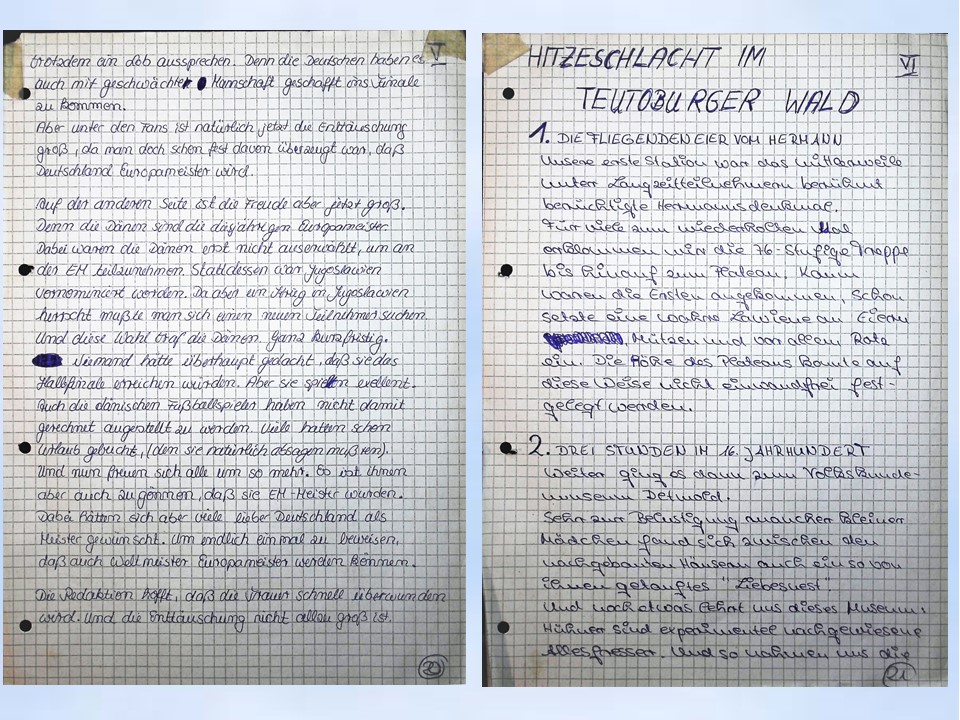 V
trotzdem ein Lob aussprechen. Denn die Deutschen haben es
auch mit geschwächter Mannschaft geschafft ins Finale
zu kommen.
Aber unter den Fans ist natürlich jetzt die Enttäuschung
groß, da man doch schon fest davon überzeugt war, daß
Deutschland Europameister wird.
Auf der anderen Seite ist die Freude aber jetzt groß.
Denn die Dänen sind die diesjährigen Europameister.
Dabei waren die Dänen erst nicht auserwählt, um an
der EM teilzunehmen. Stattdessen war Jugoslawien
vornominiert worden. Da aber ein Krieg in Jugoslawien
herrscht mußte man sich einen neuen Teilnehmer suchen.
Und diese Wahl traf die Dänen. Ganz kurzfristig.
Niemand hatte überhaupt gedacht, daß sie das
Halbfinale erreichen würden. Aber sie spielten exellent.
Auch die dänischen Fußballspieler haben nicht damit
gerechnet aufgestellt zu werden. Viele hatten schon
Urlaub gebucht, (den sie natürlich absagen mußten).
Und nun freuen sich alle um so mehr. Es ist ihnen
aber auch zu gönnen, daß sie EM-Meister wurden.
Dabei hätten sich aber viele lieber Deutschland als
Meister gewünscht. Um endlich einmal zu beweisen,
daß auch Weltmeister Europameister werden können.
Die Redaktion hofft, daß die Trauer schnell überwunden
wird. Und die Enttäuschung nicht allzu groß ist.
20
VI
HITZESCHLACHT IM
TEUTOBURGER WALD
1. DIE FLIEGENDEN EIER VOM HERMANN
Unsere erste Station war das mittlerweile
unter Langzeitteilnehmern berühmt
berüchtigte Hermannsdenkmal.
Für viele zum wiederholten Mal
erklommen wir die 76-stufige Treppe
bis hinauf zum Plateau. Kaum
waren die Ersten angekommen, schon
setzte eine wahre Lawiene an Eiern
, Mützen und vor allem Rotz
ein. Die Höhe des Plateaus konnte auf
diese Weise nicht einwandfrei fest-
gelegt werden.
2. DREI STUNDEN IM 16. JAHRHUNDERT
Weiter ging es dann zum Volkskunde-
museum Detmold.
Sehr zur Belustigung mancher kleiner
Mädchen fand sich zwischen den
nachgebauten Häusern auch ein so von
ihnen getauftes "Liebesnest".
Und noch etwas lehrt uns dieses Museum:
Hühner sind experimentell nachgewiesene
Allesfresser. Und so nahmen uns die
21